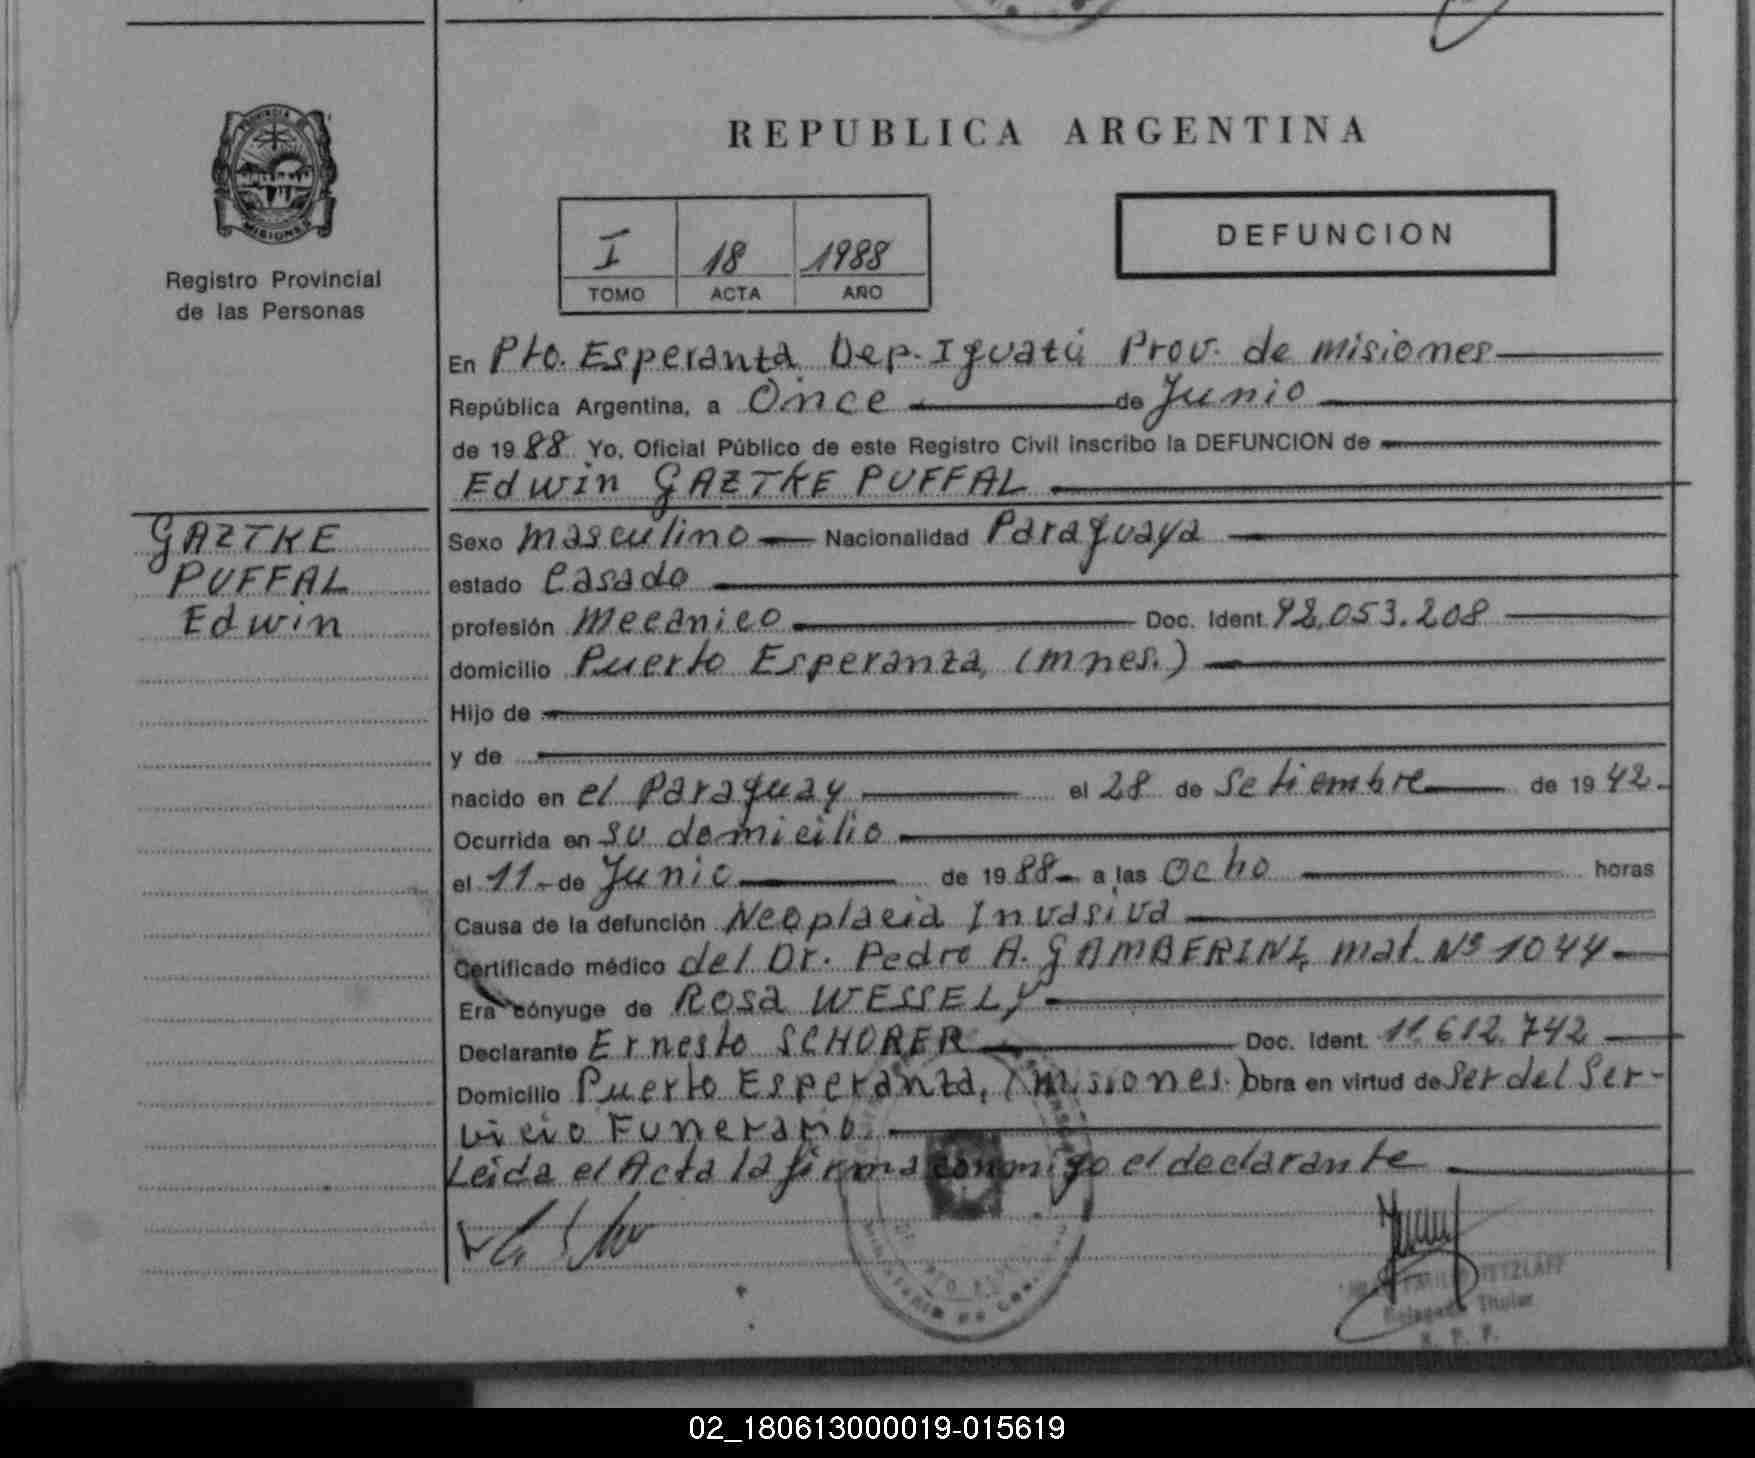 REPUBLICA ARGENTINA
PROVINCIA DE
MISIONES
Registro Provincial
de las Personas
I 18 1988
TOMO ACTA AÑO
DEFUNCION
En Pto. Esperanza Dep. Iguazú Prov. de misiones
República Argentina, a Once de Junio
de 1988 Yo, Oficial Público de este Registro Civil inscribo la DEFUNCION de
Edwin GAZTKE PUFFAL
GAZTKE
PUFFAL
Edwin
Sexo masculino Nacionalidad Paraguaya
estado Casado
profesión Mecánico Doc. Ident. 92.053.208
domicilio Puerto Esperanza, (mnes.)
Hijo de
y de
nacido en el Paraguay el 28 de Setiembre de 1942.
Ocurrida en su domicilio
el 11 de Junio de 1988 a las Ocho horas
Causa de la defunción Neoplacia Invasiva
Certificado médico del Dr. Pedro A. GAMBERINI, mat. Nº 1044
Era cónyuge de Rosa WESSELY
Declarante Ernesto SCHORER Doc. Ident. 11.612.742
Domicilio Puerto Esperanza, (Misiones.) Obra en virtud de Ser del Ser-
vicio Funerario.
Leida el Acta la firma conmigo el declarante
Titular
R. P. P.
02_180613000019-015619